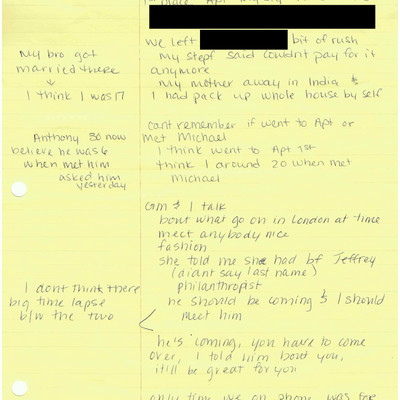 We left bit of rush
My stepf said couldnt pay for it
anymore
my mother away in India &
I had pack up whole house by self
My bro got
married there
I think I was 17
cant remember if went to Apt or
met Michael
I think went to Apt 1st
think I around 20 when met
Michael
Anthony 30 now
believe he was 6
when met him
asked him
yesterday
GM & I talk
bout what go on in London at time
meet anybody nice
fashion
she told me she had bf Jeffrey
(didnt say last name)
philanthropist
he should be coming & I should
meet him
I dont think there
big time lapse
b/w the two
he's coming, you have to come
over, I told him bout you,
it'll be great for you
only time we on phone was for